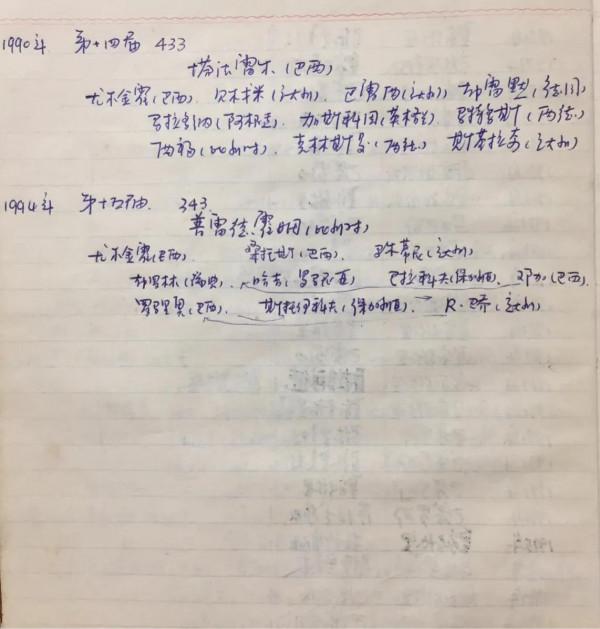 1990年 第十四届 433
塔法雷尔(巴西)
尤尔金霍(巴西). 贝尔格米(意大利). 巴雷西(意大利) 布雷默(德国)
马拉多纳(阿根廷). 加斯科因(英格兰). 马特乌斯(西德)
西福(比利时). 克林斯曼(西德). 斯基拉奇(意大利)
1994年 第十五届. 343
普雷德霍姆(比利时)
尤尔金霍(巴西). 桑托斯(巴西). 马尔蒂尼(意大利)
布罗林(瑞典). 哈吉(罗马尼亚) 巴拉科夫(保加利亚). 邓加(巴西).
罗马里奥(巴西). 斯托伊科夫(保加利亚). R·巴乔(意大利)